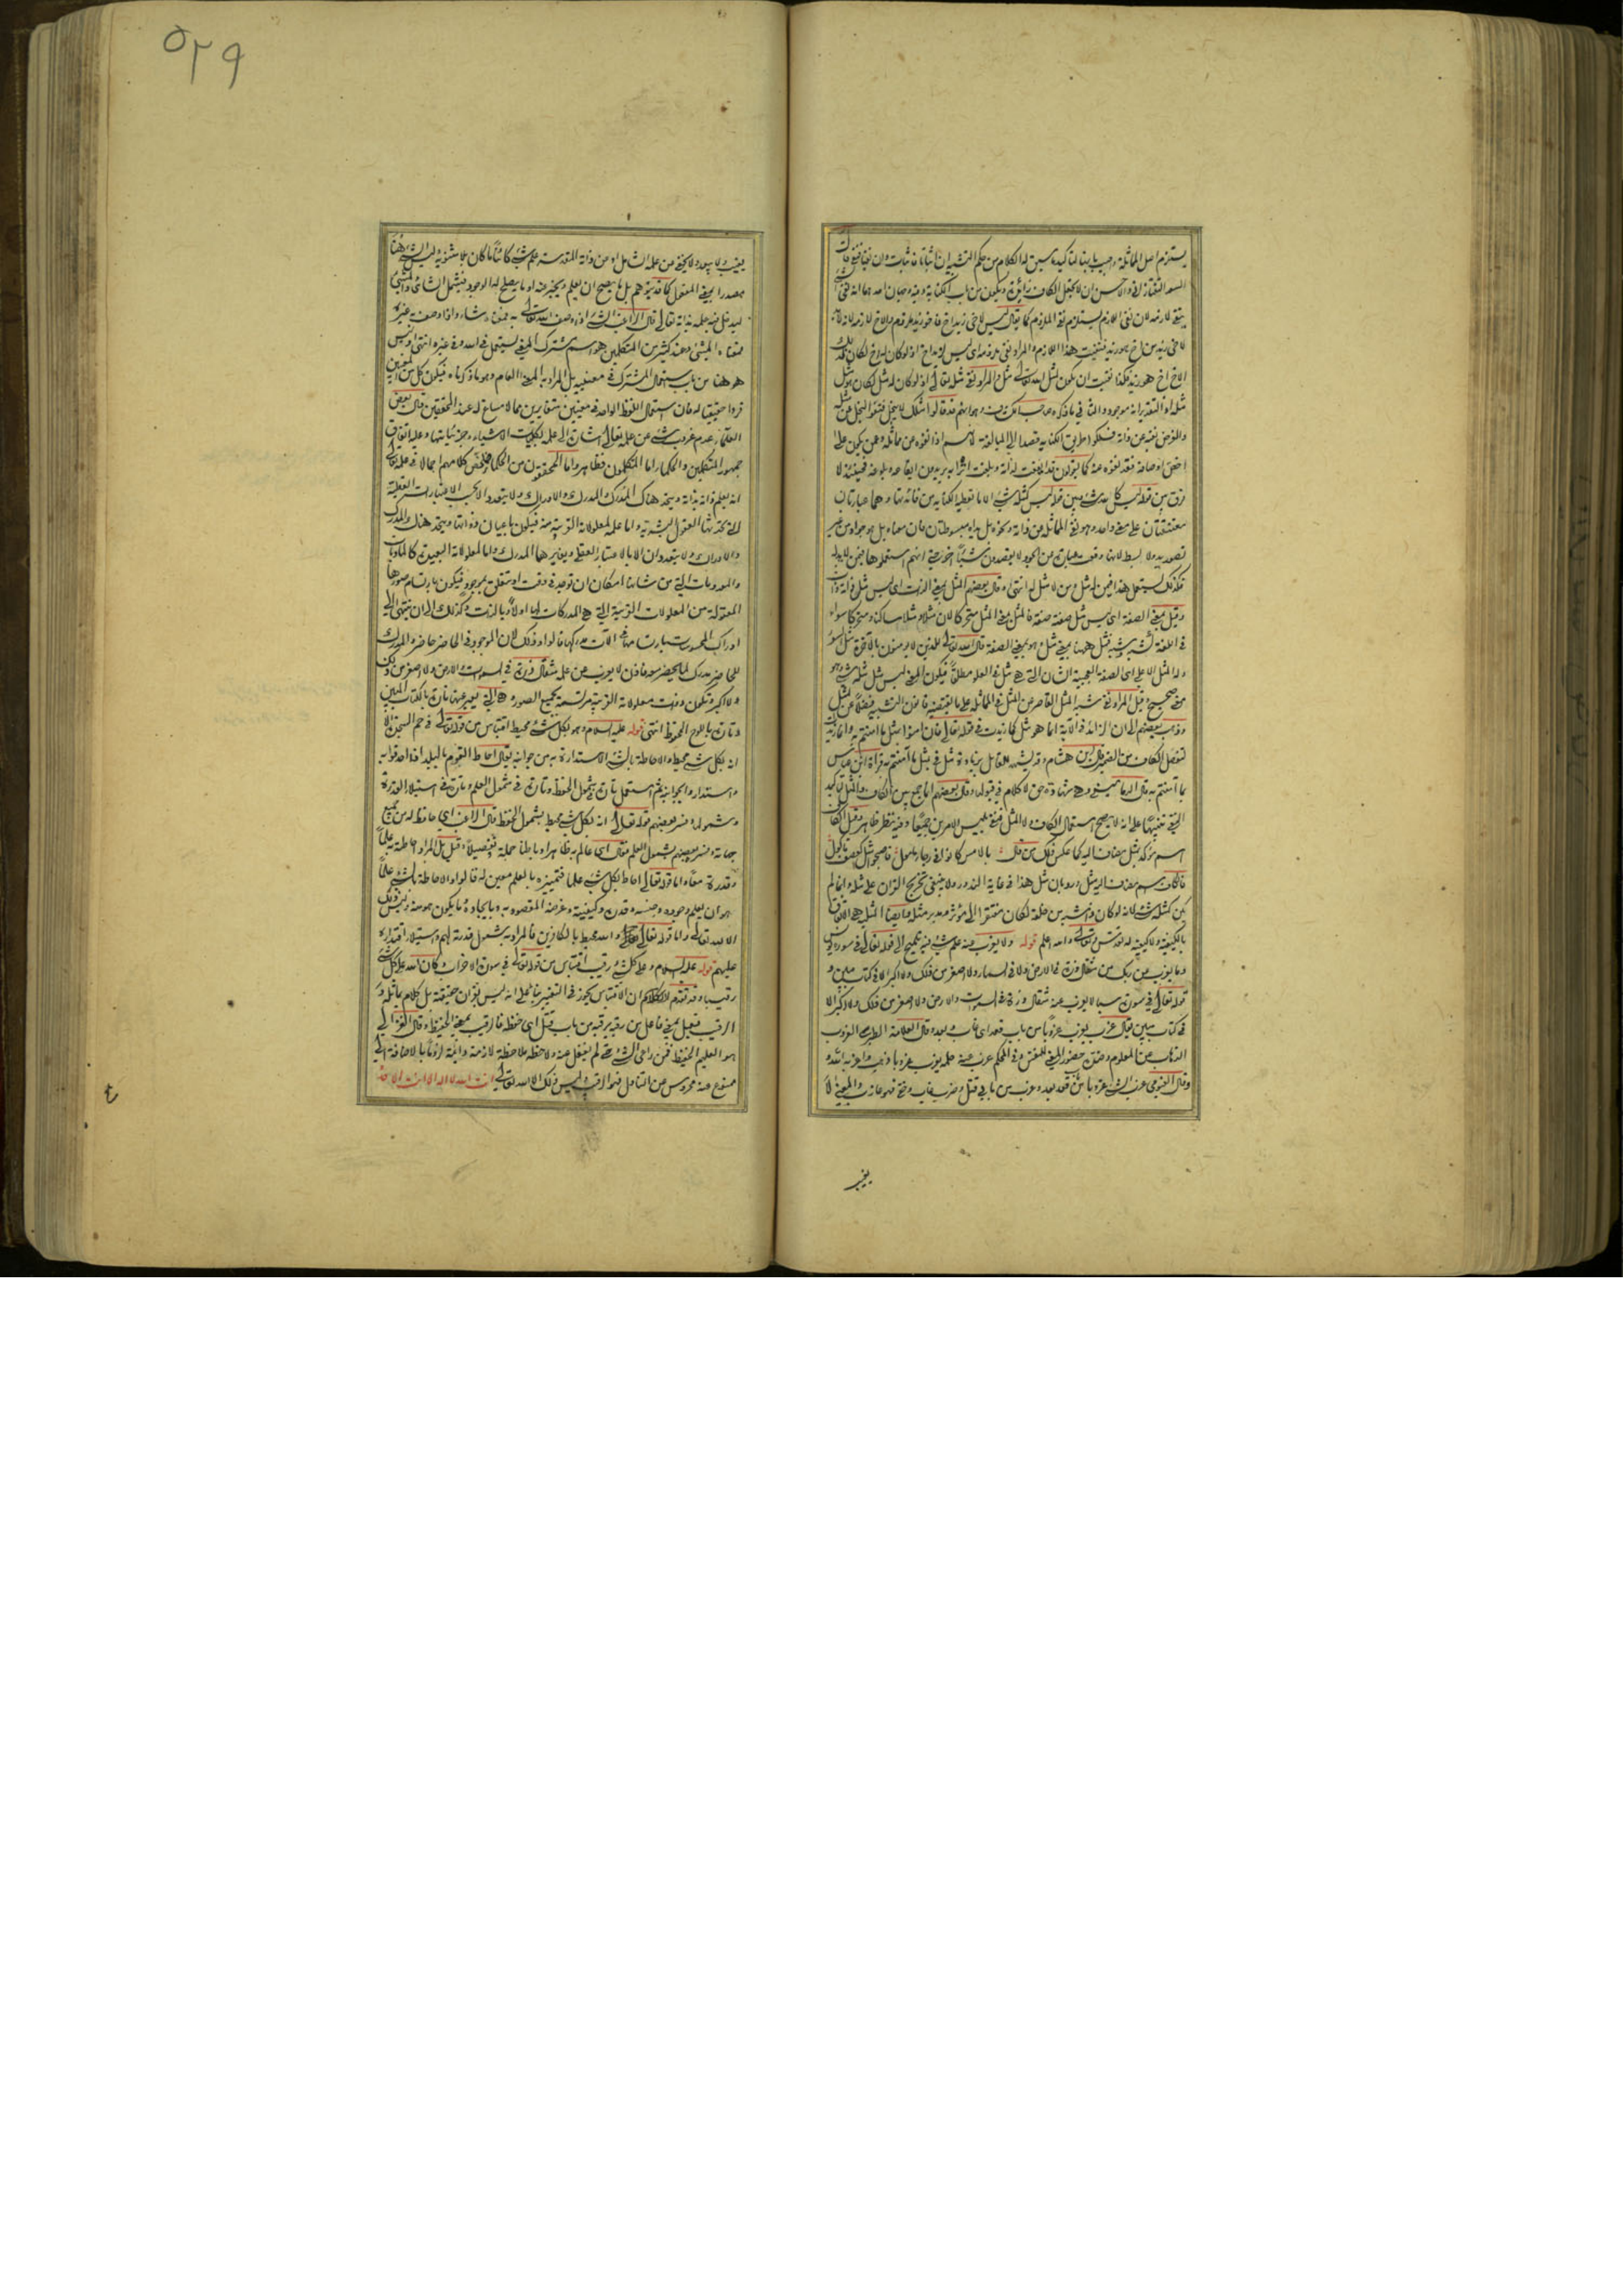 يستلزم اصل المماثلة واجيب بانها لتاكيده سيق له الكلام من حكم التشبيه ان اثباتا فاثبات وان نفيا فنفي قال
السعد التفتازاني والاحسن ان لا يجعل الكاف زائدة ويكون من باب الكناية وفيه وجهان احدهما انه نفي شئ
بنفي لازمه لان نفي اللازم يستلزم نفي الملزوم كما يقال ليس لاخي زيد اخ فاخو زيد ملزوم والاخ لازمه لانه لا بد
لاخي زيد من اخ هو زيد فنفيت هذا اللازم والمراد نفي ملزومه اي ليس لزيد اخ اذ لو كان له اخ لكان لذلك
الاخ اخ هو زيد فكذا نفيت ان يكون لمثل الله تعالى مثل والمراد نفي مثله تعالى اذ لو كان له مثل لكان هو مثل
مثله اذ التقدير انه موجود والثاني ما ذكره صاحب الكشاف وهو انهم قد قالوا مثلك لا يبخل فنفوا البخل عن مثله
والغرض نفيه عن ذاته فسلكوا طريق الكناية قصدا الى المبالغة لانهم اذا نفوه عن مماثله وعمن يكون على
اخص اوصافه فقد نفوه عنه كما يقولون قد ايفعت لداته وبلغت اترابه يريدون ايفاعه وبلوغه فحينئذ لا
فرق بين قوله ليس كالله شئ وبين قوله ليس كمثله شئ الا ما تعطيه الكناية من فائدتها وهما عبارتان
معتقبتان على معنى واحد وهو نفي المماثلة عن ذاته ونحوه بل يداه مبسوطتان فان معناه بل هو جواد من غير
تصور يد ولا بسط لانها وقعت عبارة عن الجود لا يقصدون شيئا اخر حتى انهم استعملوها فيمن لا يد له
فكذلك يستعمل هذا فيمن له مثل ومن لا مثل له انتهى وقال بعضهم المثل بمعنى الذات اي ليس مثل ذاته ذات
وقيل بمعنى الصفة اي ليس مثل صفته صفة
في اللغة شبه وشبه فمثل ههنا بمعنى مثل او بمعنى الصفة قال الله تعالى للذين لا يؤمنون بالآخرة مثل السوء
ولله المثل الاعلى اي الصفة العجيبة الشان التي هي مثل في العلو مطلقا فيكون المعنى ليس مثل مثله شئ وهو
معنى صحيح وقيل المراد نفي شبه المثل القاصر عن المثل في المماثلة على ما يقتضيه قانون التشبيه فضلا عن المثل
وذهب بعضهم الى ان الزائد في الآية انما هو مثل كما زيدت في قوله تعالى فان امنوا بمثل ما امنتم به وانما زيدت
لتفصل الكاف من الضمير قال ابن هشام وقد يشهد للقائل بزيادة مثل في بمثل ما آمنتم به قراءة ابن عباس
بما آمنتم به
الحق تنبيها على انه لا يصح استعمال الكاف ولا المثل فنفى بليس الامرين جميعا وفيه نظر ظاهر وقيل الكاف
اسم مؤكد بمثل مضاف اليه كما عكس ذلك من قال
فالكاف اسم مضاف اليه مثل ورد بان مثل هذا في غاية الندور ولا ينبغي تخريج القرآن على مثله وانما لم
يكن كمثله شئ لانه لو كان
بالكيفية ولا كيفية له تقدس وتعالى والله اعلم قوله ولا يعزب عنه علم شئ فيه تلميح الى قوله تعالى في سورة يونس
وما يعزب عن ربك من مثقال ذرة في الارض ولا في السماء ولا اصغر من ذلك ولا اكبر الا في كتاب مبين و
قوله تعالى في سورة سبا لا يعزب عنه مثقال ذرة في السموات ولا في الارض ولا اصغر من ذلك ولا اكبر الا
في كتاب مبين يقال عزب يعزب عزوبا من باب قعد اي غاب وبعد وقال العلامة الطبرسي العزوب
الذهاب عن المعلوم وضده حضور المعنى للنفس وفي المحكم عزب عنه حلمه يعزب عزوبا ذهب واعزبه الله و
وقال الفيومي عزب الشئ عزوبا من باب قعد بعد وعزب من بابي قتل وضرب غاب وخفي فهو عازب والمعنى لا
يغيب
٥٢٩
يغيب ولا يبعد ولا يخفى عن علمه الشامل او عن ذاته المقدسة علم شئ كائنا ما كان
مصدرا بمعنى المفعول كما قد يتوهم بل ما يصح ان يعلم ويخبر عنه او ما يصلح له الوجود فيشمل الشائي والمشئ
ليدخل فيه علمه بذاته تعالى قال الراغب الشئ اذا وصف الله تعالى به فمعناه شاء واذا وصف به غيره
فمعناه المشئ وعند كثير من المتكلمين هو اسم مشترك المعنى يستعمل في الله وفي غيره انتهى وليس
هو هنا من باب استعمال المشترك في معنييه بل المراد به المعنى العام وهو ما ذكرناه فيكون كل من المعنيين
فردا حقيقيا له فان استعمال اللفظ الواحد في معنيين متغايرين مما لا مساغ له عند المحققين قال بعض
العلماء عدم عزوب شئ عن علمه تعالى اشارة الى علمه بكليات الاشياء وجزئياتها وعليه اتفاق
جمهور المتكلمين والحكماء اما المتكلمون فظاهر واما المحققون من الحكماء فملخص كلامهم اجمالا في علمه تعالى
انه يعلم ذاته بذاته ويتحد هناك المدرك والمدرك والادراك ولا يتعدد الا بحسب الاعتبارات العقلية
التي تحدثها العقول البشرية واما علمه لمعلولاته القريبة منه فيكون باعيان ذواتها ويتحد هناك المدرك
والادراك ولا يتعددان الا بالاعتبار العقلي ويغايرهما المدرك واما لمعلولاته البعيدة كالماديات
والمعدومات التي من شانها امكان ان توجد في وقت او تتعلق بموجود فيكون بارتسام صورها
المعقولة عن المعلولات القريبة التي هي المدركات لها اولا وبالذات وكذلك الى ان ينتهي الى
ادراك المحسوسات بارتسامها في آلات مدركيها قالوا وذلك لان الموجود في الحاضر حاضر والمدرك
للحاضر مدرك لما يحضر معه فاذن لا يعزب عن علمه مثقال ذرة في السموات والارض ولا اصغر من ذلك
ولا اكبر ويكون ذوات معلولاته القريبة مرتسمة بجميع الصور وهي التي يعبر عنها تارة بالكتاب المبين
وتارة باللوح المحفوظ انتهى قوله عليه السلام وهو بكل شئ محيط اقتباس من قوله تعالى في حم السجدة الا
انه بكل شئ محيط والاحاطة بالشئ الاستدارة به من جوانبه يقال احاط القوم بالبلد اذا احدقوا به
واستداروا بجوانبه ثم استعمل تارة في شمول الحفظ وتارة في شمول العلم وتارة في استيلاء القدرة
وشمولها وفسر بعضهم قوله تعالى انه بكل شئ محيط بشمول الحفظ قال الراغب اي حافظ له من جميع
جهاته وفسره بعضهم بشمول العلم فقال اي عالم به ظاهرا وباطنا جملة وتفصيلا وقيل بل المراد احاطته به علما
وقدرة معا واما قوله تعالى احاط بكل شئ علما فتمييزه بالعلم معين له قالوا والاحاطة بالشئ علما
هو ان يعلم وجوده وجنسه وقدره وكيفيته وغرضه المقصود به وبايجاده وما يكون به ومنه وليس ذلك
الا لله تعالى واما قوله تعالى والله محيط بالكافرين فالمراد به شمول قدرته لهم واستيلاء اقتداره
عليهم قوله عليه السلام وعلى كل شئ رقيب اقتباس من قوله تعالى في سورة الاحزاب وكان الله على كل شئ
رقيبا وقد تقدم الكلام ان الاقتباس يجوز فيه التغيير بناء على انه ليس بقرآن حقيقة بل كلام يماثله و
الرقيب فعيل بمعنى فاعل من رقبه يرقبه من باب قتل اي حفظه فالرقيب بمعنى الحفيظ وقال الغزالي
هو العليم الحفيظ فمن راعى الشئ حتى لم يغفل عنه ولاحظه ملاحظة لازمة دائمة لزوما بالاضافة الى
ممنوع عنه محروس عن التناول فهو الرقيب وليس ذلك الا لله تعالى انت الله لا اله الا انت الاحد